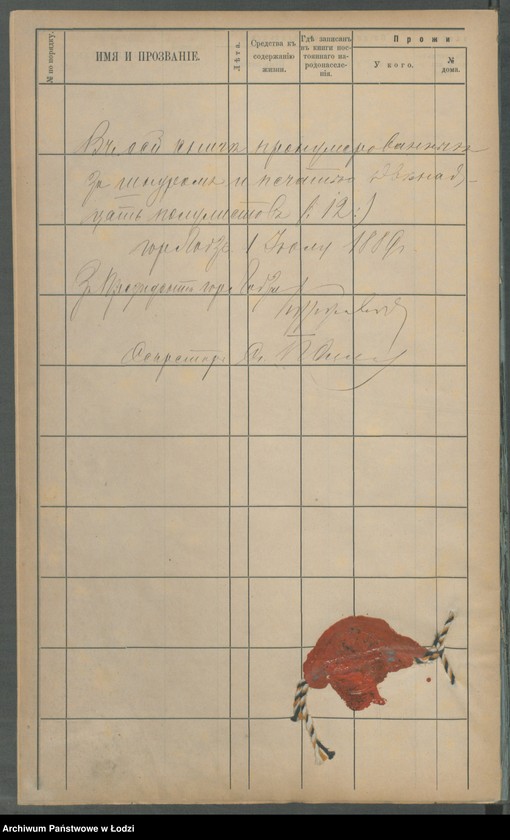 № по порядку.
ИМЯ И ПРОЗВАНІЕ.
Лѣта.
Средства къ
содержанію
жизни.
Гдѣ записанъ
въ книги пос-
тояннаго на-
родонаселе-
нія.
Прожи
У кого.
№
дома.
Въ сей книгѣ пронумерованныхъ
за шнуромъ и печатью двѣнад-
цать полулистовъ /:12:/
гор. Лодзь 1 1889 г.
Президента гор. Лодзи
Секретарь
Archiwum Państwowe w Łodzi